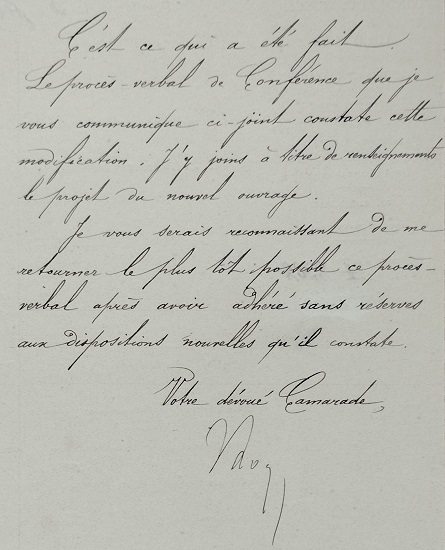 C'est ce qui a été fait.
Le procès-verbal de Conférence que je
vous communique ci-joint constate cette
modification. J'y joins à titre de renseignements
le projet du nouvel ouvrage.
Je vous serais reconnaissant de me
retourner le plus tôt possible ce procès-
verbal après avoir adhéré sans réserves
aux dispositions nouvelles qu'il constate.
Votre dévoué Camarade,